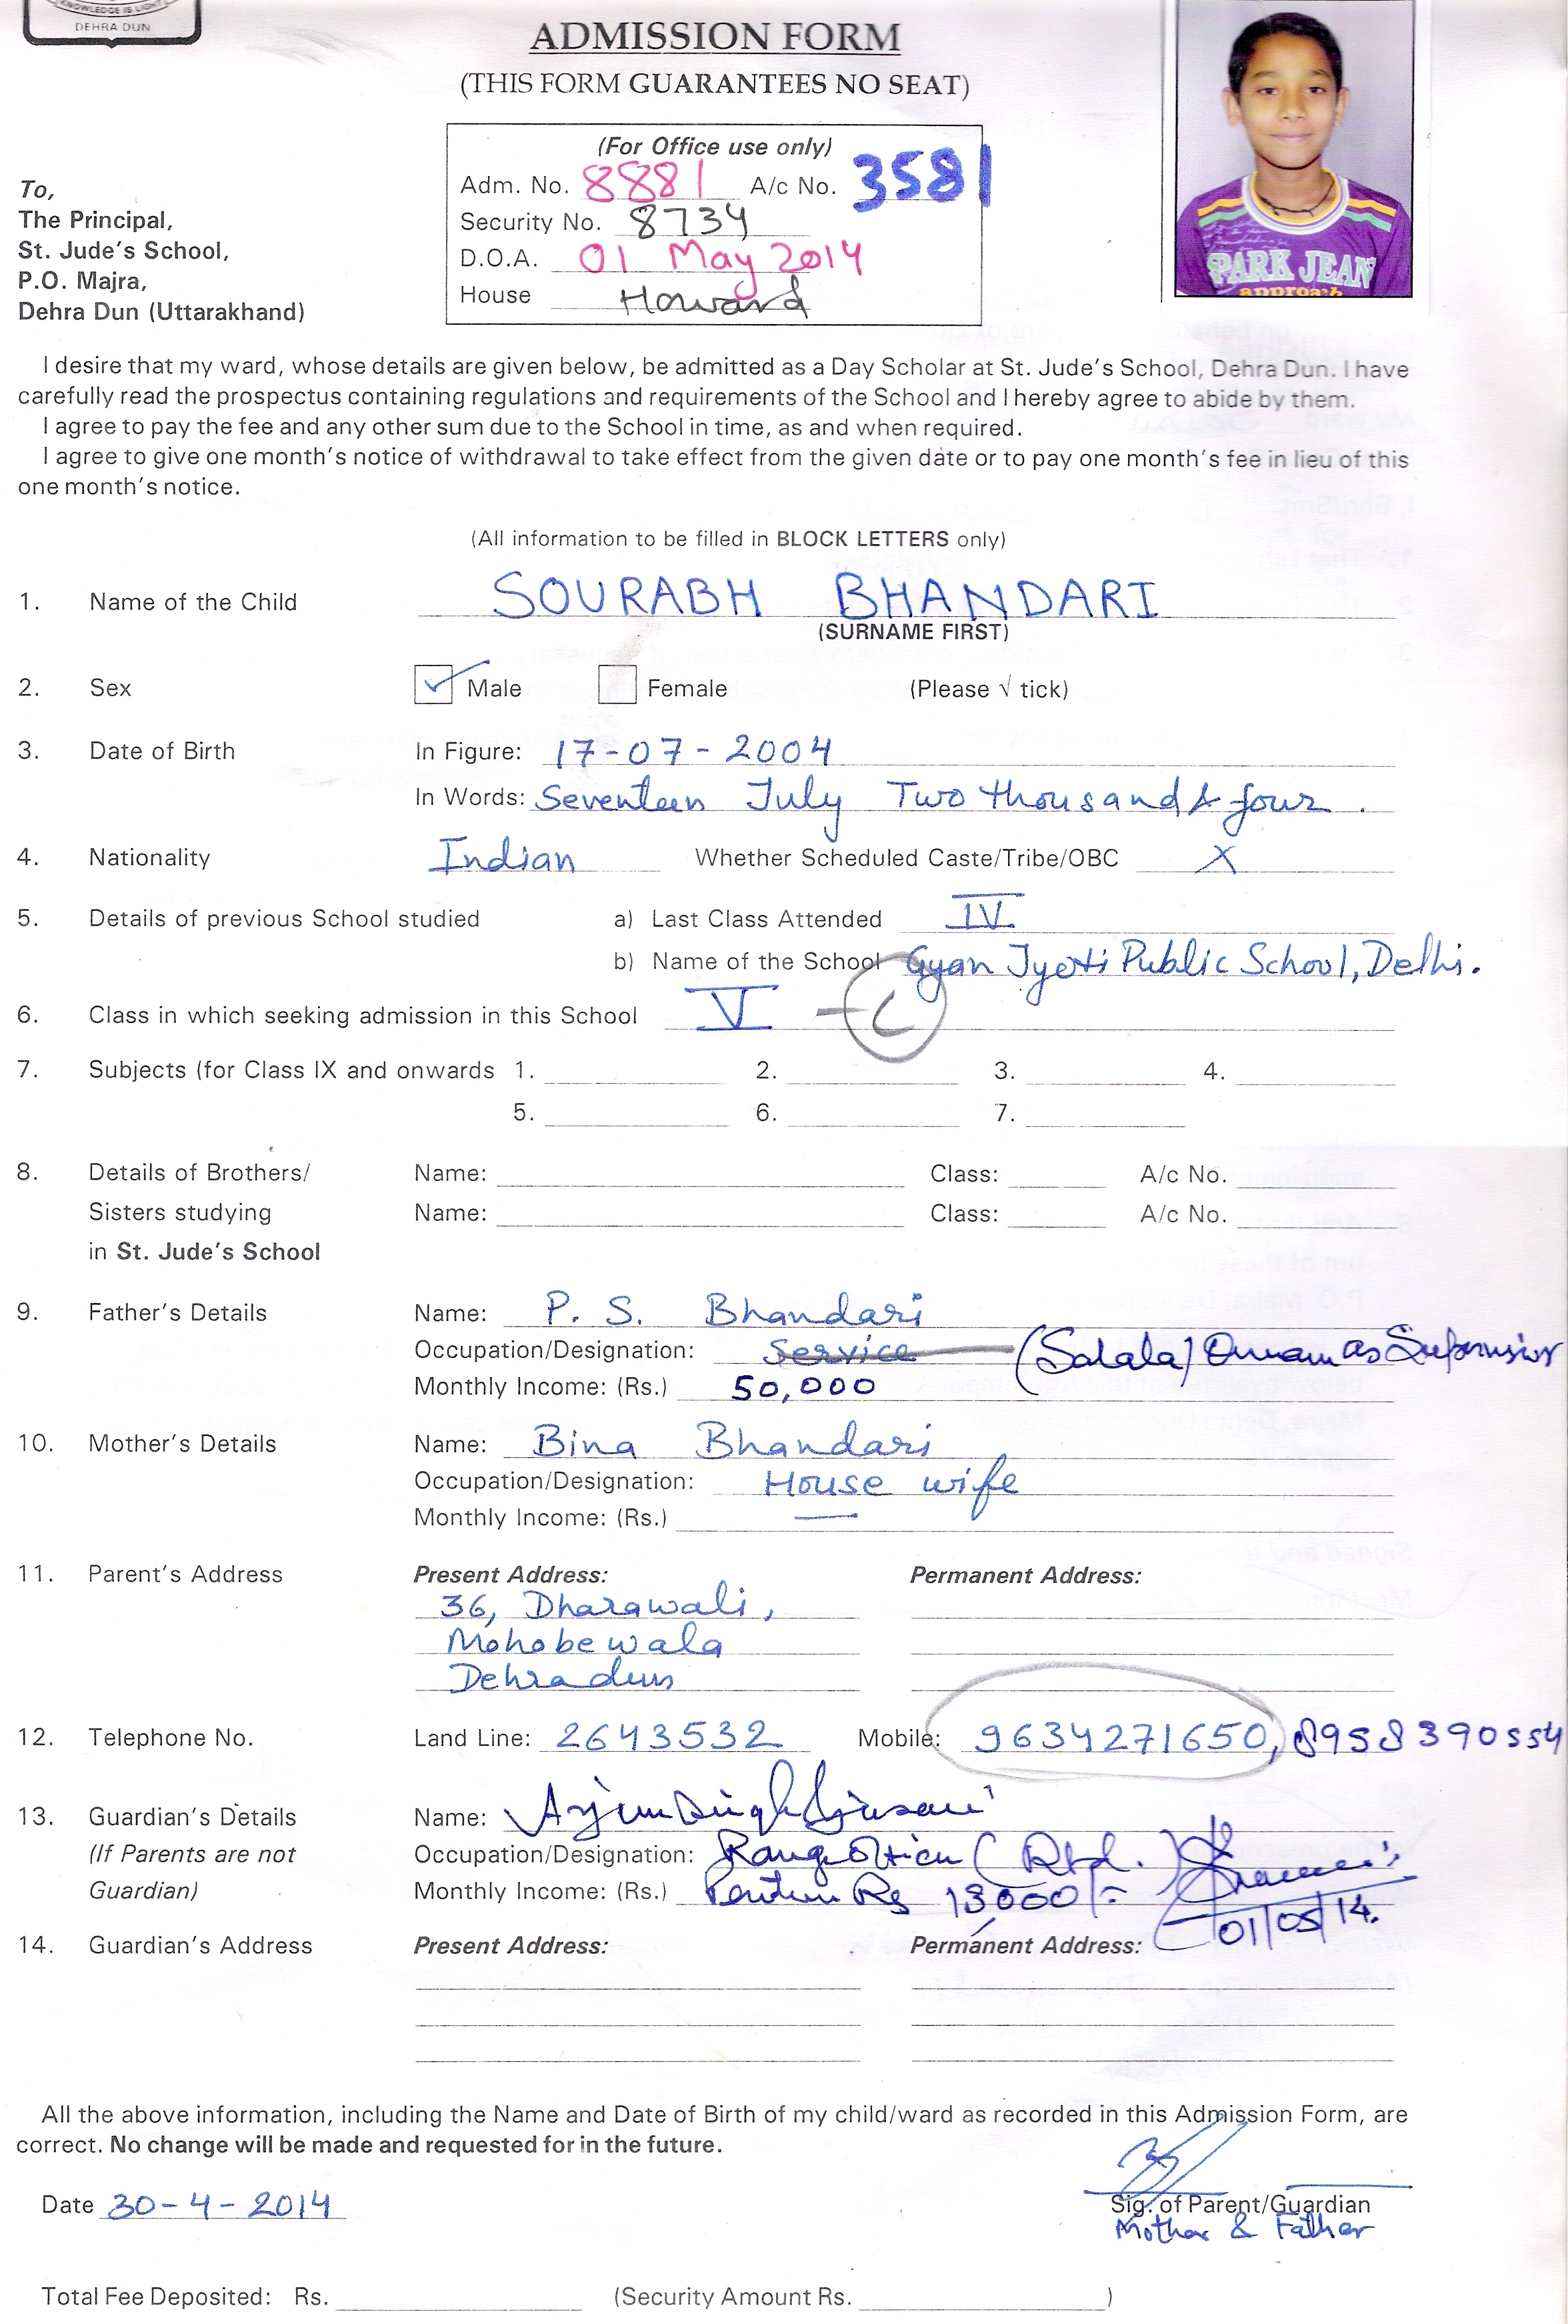 KNOWLEDGE IS LIGHT
DEHRA DUN
ADMISSION FORM
(THIS FORM GUARANTEES NO SEAT)
(For Office use only)
Adm. No. 8881 A/c No. 3581
Security No. 8734
D.O.A. 01 May 2014
House Howard
To,
The Principal,
St. Jude's School,
P.O. Majra,
Dehra Dun (Uttarakhand)
PARK JEAN
approach
I desire that my ward, whose details are given below, be admitted as a Day Scholar at St. Jude's School, Dehra Dun. I have
carefully read the prospectus containing regulations and requirements of the School and I hereby agree to abide by them.
I agree to pay the fee and any other sum due to the School in time, as and when required.
I agree to give one month's notice of withdrawal to take effect from the given date or to pay one month's fee in lieu of this
one month's notice.
(All information to be filled in BLOCK LETTERS only)
1. Name of the Child SOURABH BHANDARI
(SURNAME FIRST)
2. Sex ✓ Male Female (Please √ tick)
3. Date of Birth In Figure: 17-07-2004
In Words: Seventeen July Two thousand & four.
4. Nationality Indian Whether Scheduled Caste/Tribe/OBC X
5. Details of previous School studied a) Last Class Attended IV
b) Name of the School Gyan Jyoti Public School, Delhi.
6. Class in which seeking admission in this School V - C
7. Subjects (for Class IX and onwards 1. 2. 3. 4.
5. 6. 7.
8. Details of Brothers/ Name: Class: A/c No.
Sisters studying Name: Class: A/c No.
in St. Jude's School
9. Father's Details Name: P. S. Bhandari
Occupation/Designation: Service (Salala) Oman as Supervisor
Monthly Income: (Rs.) 50,000
10. Mother's Details Name: Bina Bhandari
Occupation/Designation: House wife
Monthly Income: (Rs.) —
11. Parent's Address Present Address: Permanent Address:
36, Dharawali,
Mohobewala
Dehradun
12. Telephone No. Land Line: 2643532 Mobile: 9634271650, 8958390554
13. Guardian's Details Name: Arjun Singh
(If Parents are not Occupation/Designation: (Rtd.)
Guardian) Monthly Income: (Rs.) Rs 13000/=
01/05/14.
14. Guardian's Address Present Address: Permanent Address:
All the above information, including the Name and Date of Birth of my child/ward as recorded in this Admission Form, are
correct. No change will be made and requested for in the future.
Date 30-4-2014
Sig. of Parent/Guardian
Mother & Father
Total Fee Deposited: Rs. (Security Amount Rs. )